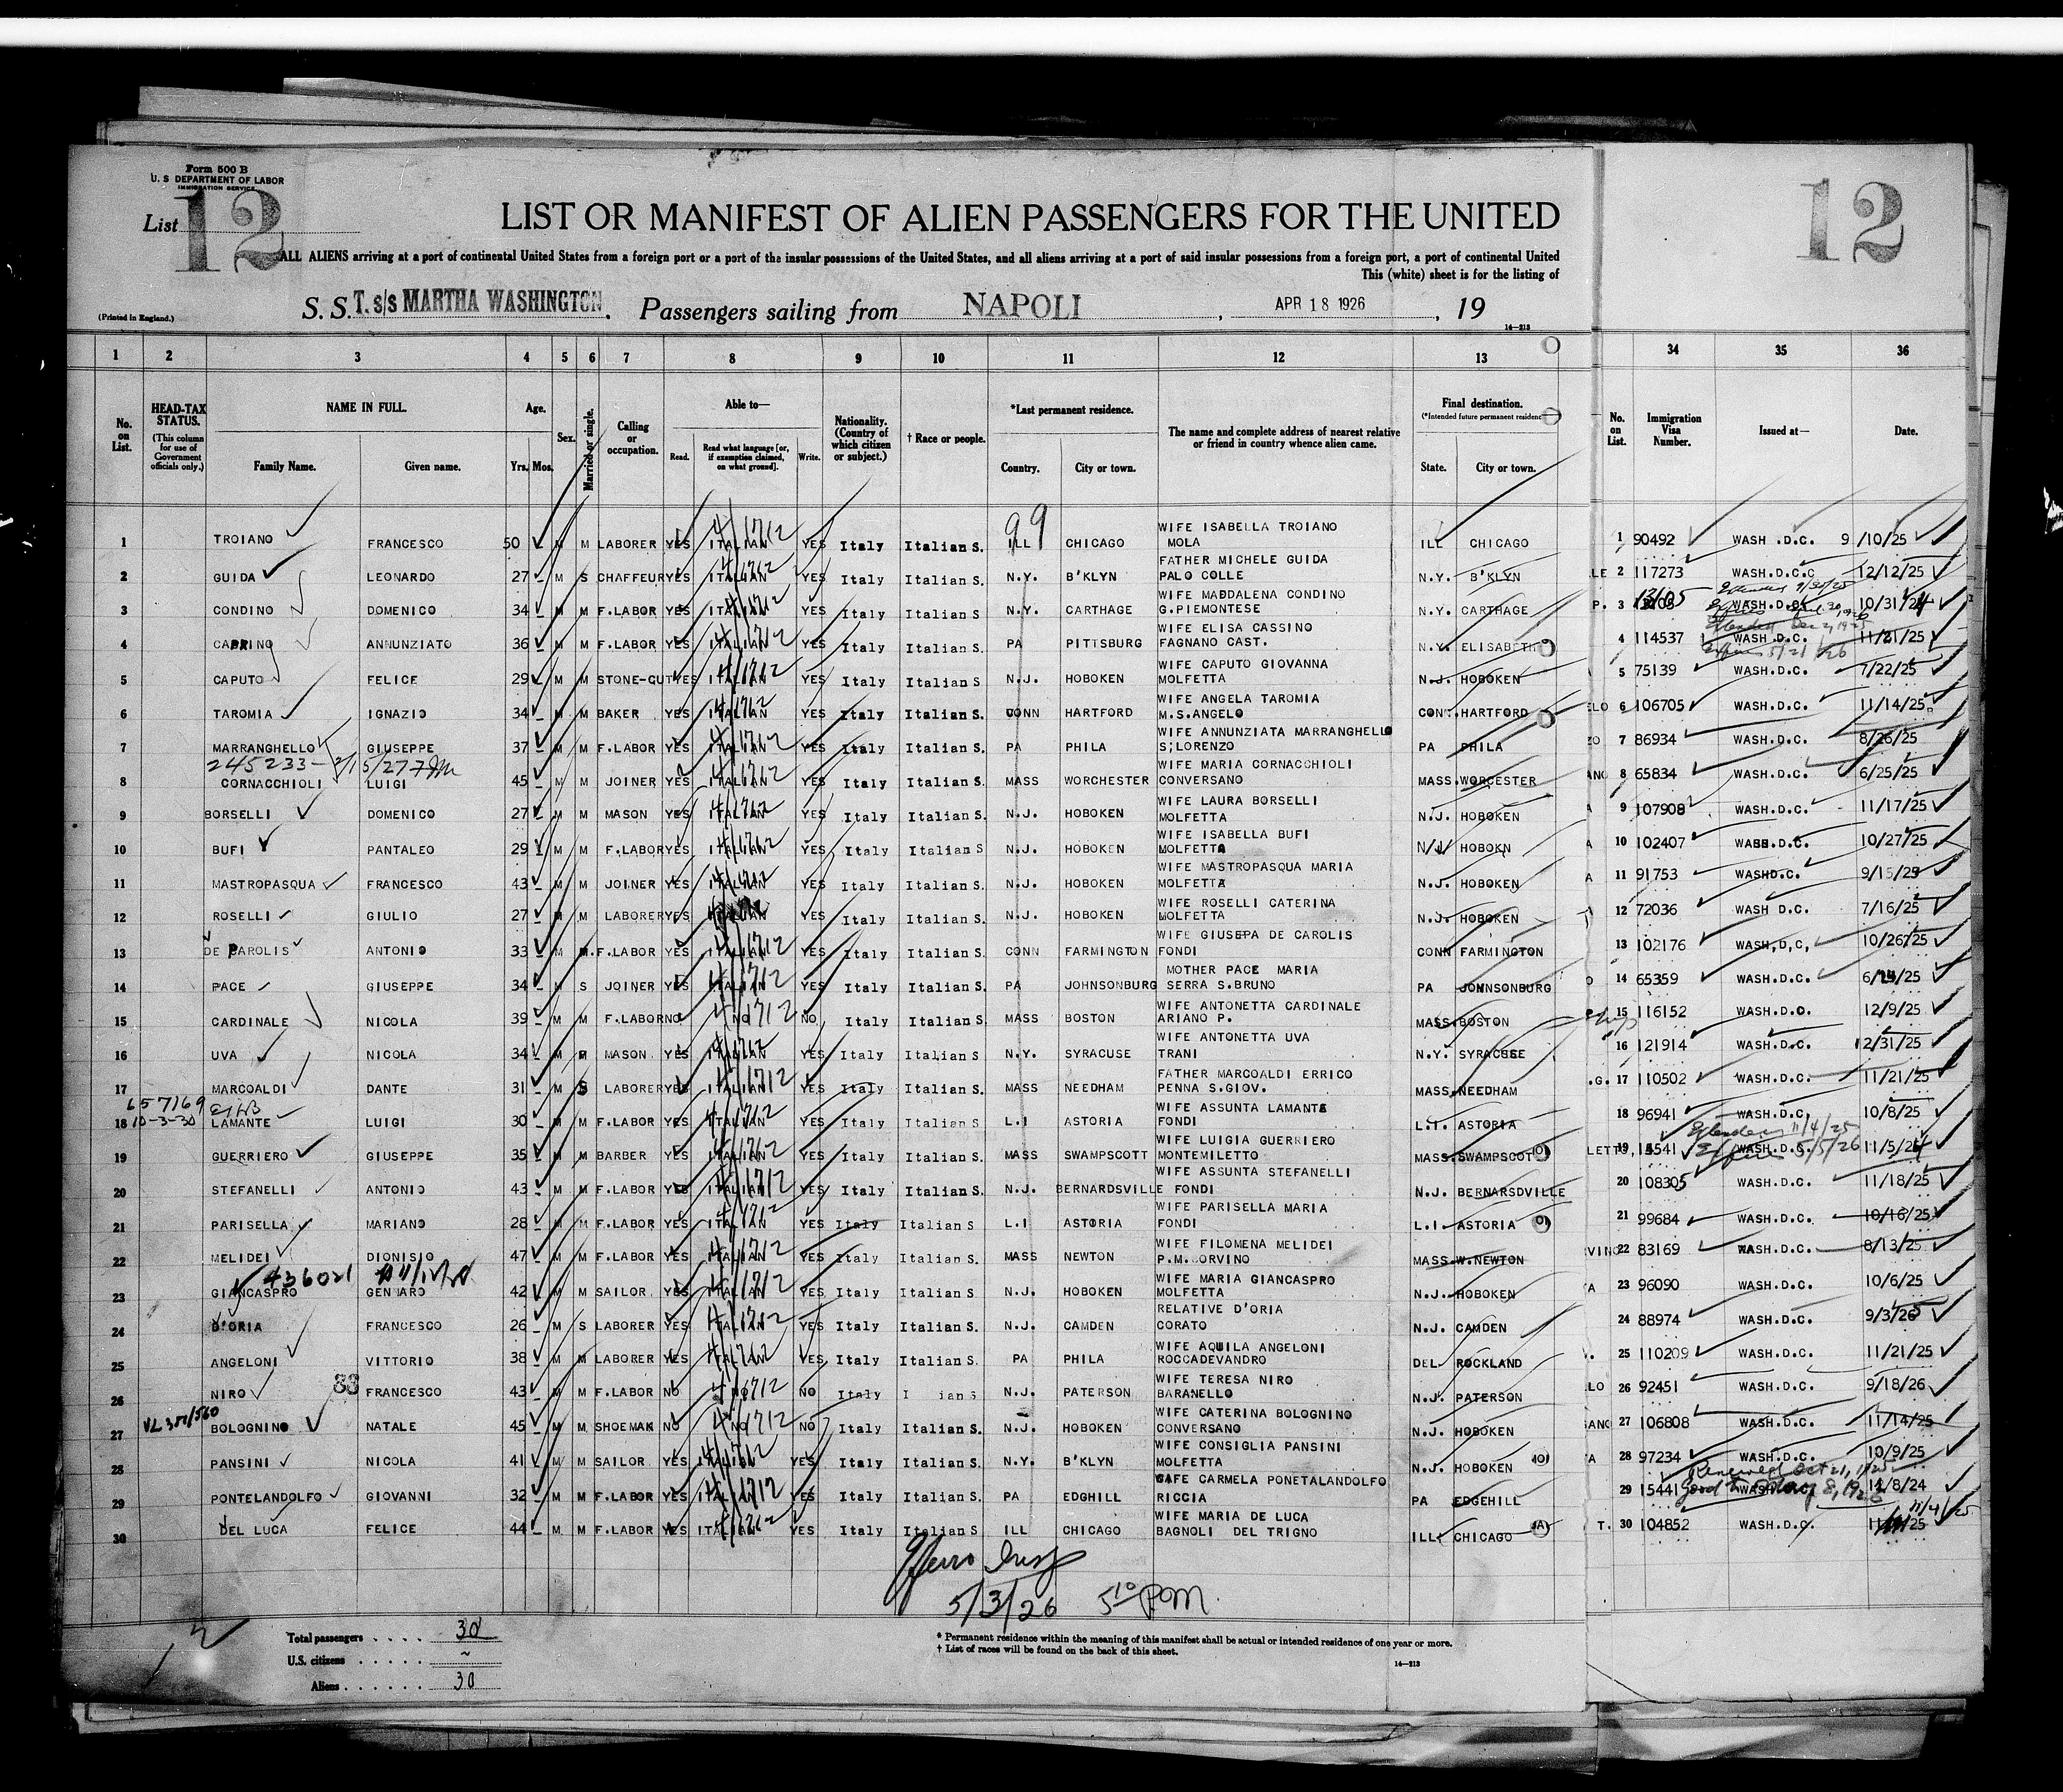 Form 500 B
U. S DEPARTMENT OF LABOR
IMMIGRATION SERVICE
List 12
12
LIST OR MANIFEST OF ALIEN PASSENGERS FOR THE UNITED
ALL ALIENS arriving at a port of continental United States from a foreign port or a port of the insular possessions of the United States, and all aliens arriving at a port of said insular possessions from a foreign port, a port of continental United
This (white) sheet is for the listing of
(Printed in England.) S. S. T. s/s MARTHA WASHINGTON. Passengers sailing from NAPOLI, APR 18 1926, 19
14—213
1 2 3 4 5 6 7 8 9 10 11 12 13 34 35 36
No. on List. HEAD-TAX STATUS. (This column for use of Government officials only.) NAME IN FULL. Family Name. Given name. Age. Yrs. Mos. Sex. Married or single. Calling or occupation. Able to— Read. Read what language [or, if exemption claimed, on what ground]. Write. Nationality. (Country of which citizen or subject.) † Race or people. *Last permanent residence. Country. City or town. The name and complete address of nearest relative or friend in country whence alien came. Final destination. (*Intended future permanent residence State. City or town. No. on List. Immigration Visa Number. Issued at— Date.
99
1 TROIANO FRANCESCO 50 M M LABORER YES ITALIAN YES Italy Italian S. ILL CHICAGO WIFE ISABELLA TROIANO MOLA ILL CHICAGO 1 90492 WASH .D.C. 9 /10/25
2 GUIDA LEONARDO 27 M S CHAFFEUR YES ITALIAN YES Italy Italian S. N.Y. B'KLYN FATHER MICHELE GUIDA PALO COLLE N.Y. B'KLYN LE 2 117273 WASH.D.C.C 12/12/25
3 CONDINO DOMENICO 34 M M F.LABOR YES ITALIAN YES Italy Italian S. N.Y. CARTHAGE WIFE MADDALENA CONDINO G.PIEMONTESE N.Y. CARTHAGE P. 3 WASH.D.C. 10/31/24
4 ANNUNZIATO 36 M M F.LABOR YES ITALIAN YES Italy Italian S. PA PITTSBURG WIFE ELISA CASSINO FAGNANO CAST. N.Y. ELISABETH 4 114537 WASH D.C. 11/21/25
Expires 5/21/26
5 CAPUTO FELICE 29 M M STONE-CUT YES ITALIAN YES Italy Italian S N.J. HOBOKEN WIFE CAPUTO GIOVANNA MOLFETTA N.J. HOBOKEN 5 75139 WASH.D.C. 7/22/25
6 TAROMIA IGNAZIO 34 M M BAKER YES ITALIAN YES Italy Italian S. CONN HARTFORD WIFE ANGELA TAROMIA M.S.ANGELO CONN. HARTFORD ELO 6 106705 WASH.D.C. 11/14/25
7 MARRANGHELLO GIUSEPPE 37 M M F.LABOR YES ITALIAN YES Italy Italian S. PA PHILA WIFE ANNUNZIATA MARRANGHELLO S;LORENZO PA PHILA ZO 7 86934 WASH.D.C. 8/26/25
245233-
8 CORNACCHIOLI LUIGI 45 M M JOINER YES ITALIAN YES Italy Italian S. MASS WORCHESTER WIFE MARIA CORNACCHIOLI CONVERSANO MASS. WORCESTER ANO 8 65834 WASH.D.C. 6/25/25
9 BORSELLI DOMENICO 27 M M MASON YES ITALIAN YES Italy Italian S. N.J. HOBOKEN WIFE LAURA BORSELLI MOLFETTA N.J. HOBOKEN A 9 107908 WASH.D.C. 11/17/25
10 BUFI PANTALEO 29 M M F.LABOR YES ITALIAN YES Italy Italian S N.J. HOBOKEN WIFE ISABELLA BUFI MOLFETTA HOBOKN A 10 102407 WASH.D.C. 10/27/25
11 MASTROPASQUA FRANCESCO 43 M M JOINER YES ITALIAN YES Italy Italian S. N.J. HOBOKEN WIFE MASTROPASQUA MARIA MOLFETTA N.J. HOBOKEN A 11 91753 WASHD.C. 9/15/25
12 ROSELLI GIULIO 27 M M LABORER YES ITALIAN YES Italy Italian S. N.J. HOBOKEN WIFE ROSELLI CATERINA MOLFETTA N.J. HOBOKEN 12 72036 WASH D.C. 7/16/25
13 DE CAROLIS ANTONIO 33 M M. F.LABOR YES ITALIAN YES Italy Italian S. CONN FARMINGTON WIFE GIUSEPA DE CAROLIS FONDI CONN FARMINGTON 13 102176 WASH,D,C, 10/26/25
14 PACE GIUSEPPE 34 M S JOINER YES ITALIAN YES Italy Italian S. PA JOHNSONBURG MOTHER PACE MARIA SERRA S.BRUNO PA JOHNSONBURG O 14 65359 WASH.D.C.
15 CARDINALE NICOLA 39 M M F.LABOR NO NO NO Italy Italian S. MASS BOSTON WIFE ANTONETTA CARDINALE ARIANO P. MASS. BOSTON 15 116152 WASH.D.C. 12/9/25
16 UVA NICOLA 34 M M MASON YES ITALIAN YES Italy Italian S. N.Y. SYRACUSE WIFE ANTONETTA UVA TRANI N.Y. SYRACUSE 16 121914 WASH.D.C. 12/31/25
17 MARCOALDI DANTE 31 M S LABORER YES ITALIAN YES Italy Italian S. MASS NEEDHAM FATHER MARCOALDI ERRICO PENNA S.GIOV. MASS. NEEDHAM .G. 17 110502 WASH.D.C. 11/21/25
657169
10-3-30
18 LAMANTE LUIGI 30 M M F.LABOR YES ITALIAN YES Italy Italian S L.I ASTORIA WIFE ASSUNTA LAMANTE FONDI L.I. ASTORIA 18 96941 WASH.D.C. 10/8/25
Extended 11/4/25
19 GUERRIERO GIUSEPPE 35 M M BARBER YES ITALIAN YES Italy Italian S. MASS SWAMPSCOTT WIFE LUIGIA GUERRIERO MONTEMILETTO MASS. SWAMPSCOT LETTO, 19 15541 WASH.D.C. 11/5/24
Expires 5/5/26
20 STEFANELLI ANTONIO 43 M M F.LABOR YES ITALIAN YES Italy Italian S. N.J. BERNARDSVILLE WIFE ASSUNTA STEFANELLI FONDI N.J. BERNARSDVILLE 20 108305 WASH.D.C. 11/18/25
21 PARISELLA MARIANO 28 M M F.LABOR YES ITALIAN YES Italy Italian S L.I ASTORIA WIFE PARISELLA MARIA FONDI L.I. ASTORIA 21 99684 WASH.D.C. 10/16/25
22 MELIDEI DIONISIO 47 M M F.LABOR YES ITALIAN YES Italy Italian S. MASS NEWTON WIFE FILOMENA MELIDEI P.M. ORVINO MASS. W.NEWTON VINO 22 83169 WASH.D.C. 8/13/25
436021
23 GIANCASPRO GENNARO 42 M M SAILOR YES ITALIAN YES Italy Italian S. N.J. HOBOKEN WIFE MARIA GIANCASPRO MOLFETTA N.J. HOBOKEN A 23 96090 WASH.D.C. 10/6/25
24 D'ORIA FRANCESCO 26 M S LABORER YES ITALIAN YES Italy Italian S. N.J. CAMDEN RELATIVE D'ORIA CORATO N.J. CAMDEN 24 88974 WASH.D.C. 9/3/25
25 ANGELONI VITTORIO 38 M M LABORER YES ITALIAN YES Italy Italian S. PA PHILA WIFE AQUILA ANGELONI ROCCADEVANDRO DEL ROCKLAND 25 110209 WASH.D.C. 11/21/25
26 NIRO 33 FRANCESCO 43 M M F.LABOR NO NO NO Italy I ian S N.J. PATERSON WIFE TERESA NIRO BARANELLO N.J. PATERSON LO 26 92451 WASH.D.C. 9/18/26
27 BOLOGNINO NATALE 45 M M SHOEMAK NO NO NO Italy Italian S. N.J. HOBOKEN WIFE CATERINA BOLOGNINO CONVERSANO N.J. HOBOKEN SANO 27 106808 WASH.D.C. 11/14/25
28 PANSINI NICOLA 41 M M SAILOR YES ITALIAN YES Italy Italian S. N.Y. B'KLYN WIFE CONSIGLIA PANSINI MOLFETTA N.J. HOBOKEN A 28 97234 WASH.D.C. 10/9/25
Renewed Oct 21, 1925
29 PONTELANDOLFO GIOVANNI 32 M M F.LABOR YES ITALIAN YES Italy Italian S. PA EDGHILL WIFE CARMELA PONETALANDOLFO RICCIA PA EDGEHILL 29 15441 11/8/24
11/4/25
30 DEL LUCA FELICE 44 M M F.LABOR YES ITALIAN YES Italy Italian S ILL CHICAGO WIFE MARIA DE LUCA BAGNOLI DEL TRIGNO ILL CHICAGO T. 30 104852 WASH.D.C.
5/3/26 5 10 PM
Total passengers . . . . 30
U.S. citizens . . . . . ~
Aliens . . . . . . 30
* Permanent residence within the meaning of this manifest shall be actual or intended residence of one year or more.
† List of races will be found on the back of this sheet.
14—213